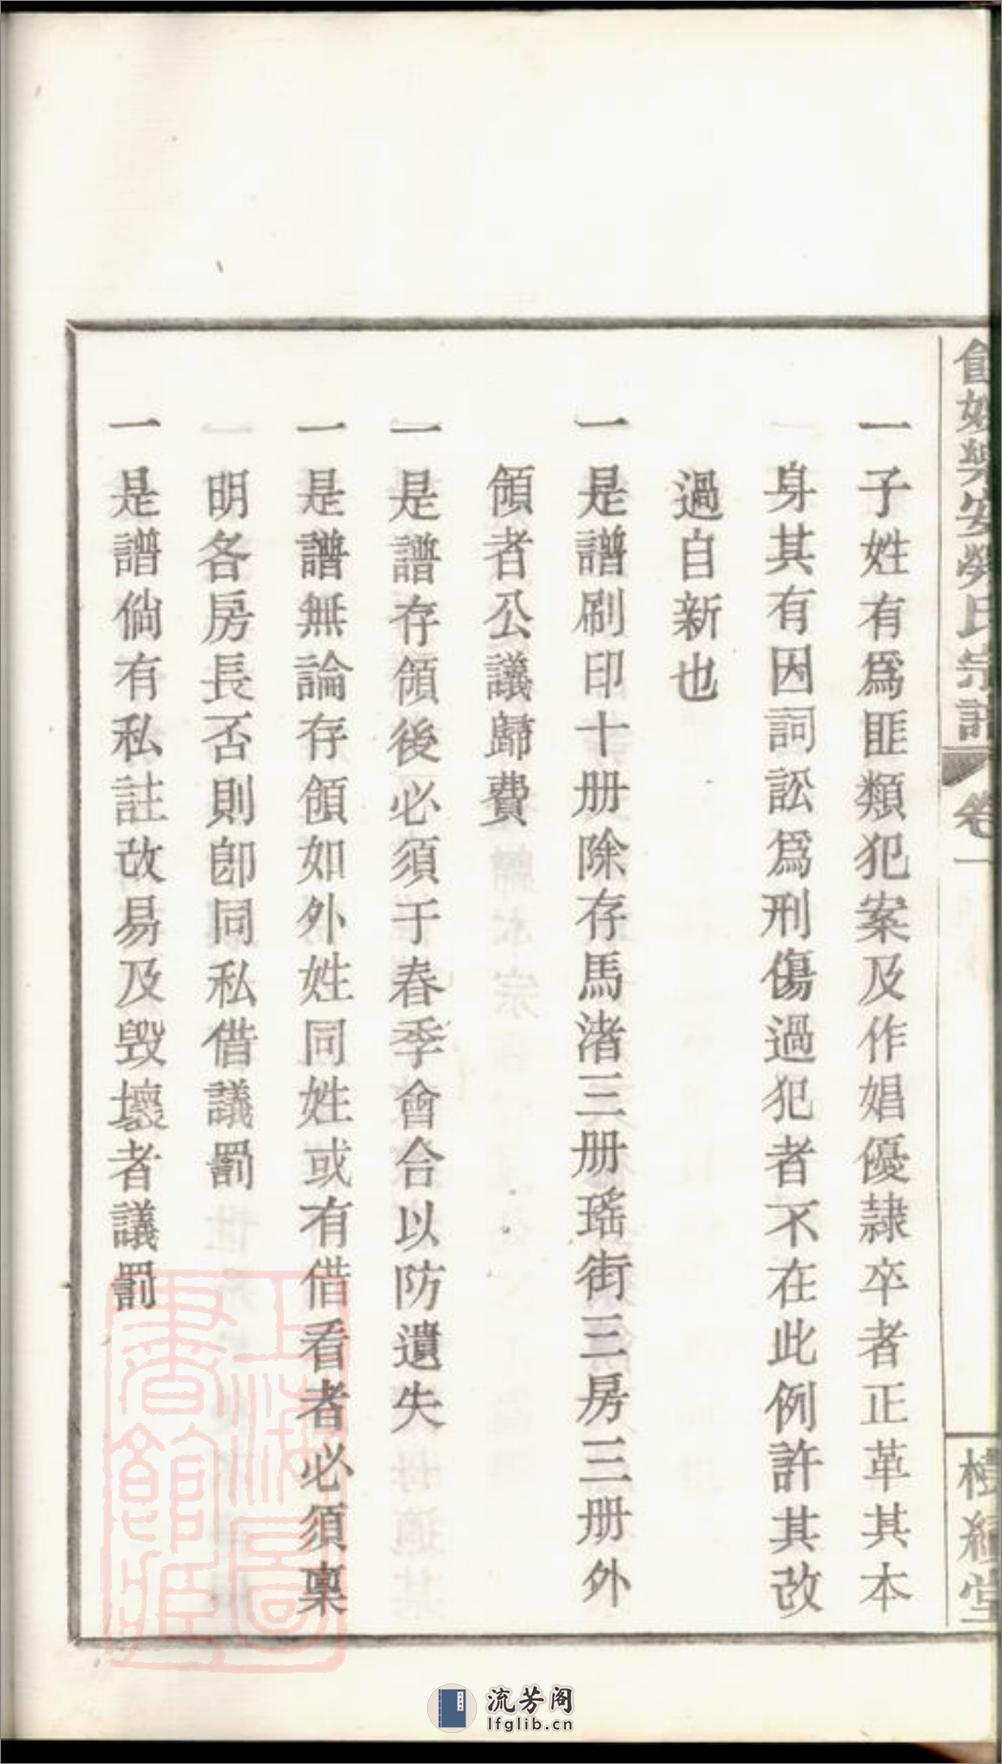 會姒樊安勞氏宗譜 卷一
一子姓有爲匪類犯案及作娼優隷卒者正革其本
身其有因詞訟爲刑傷過犯者不在此例許其改
過自新也
一是譜刷印十册除存馬渚三册瑤街三房三册外
領者公議歸費
一是譜存領後必須于春季會合以防遺失
一是譜無論存領如外姓同姓或有借看者必須稟
明各房長否則卽同私借議罰
一是譜倘有私註改易及毀壞者議罰
堂
上海圖書館藏
流芳阁
lfglib.cn